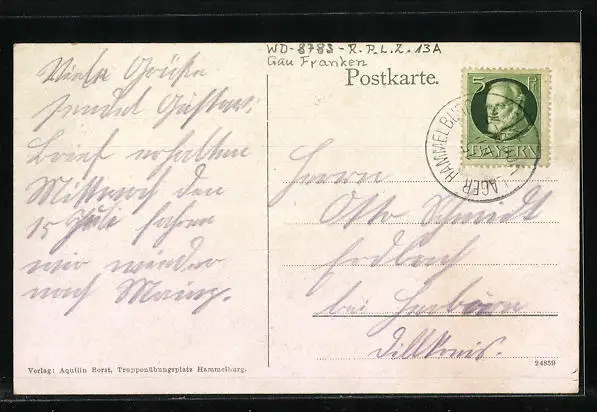 WD-8783-R.P.L.Z.13A
Gau Franken
Postkarte.
5 Pf
BAYERN
LAGER HAMMELBURG
Viele Grüße
sendet Gustav;
Brief erhalten
Mittwoch den
15 Juli fahren
wir wieder
nach Mainz.
Herrn
Otto Schmidt
Erdbach
bei Herborn
Dillkreis.
Verlag: Aquilin Borst, Truppenübungsplatz Hammelburg.
24859